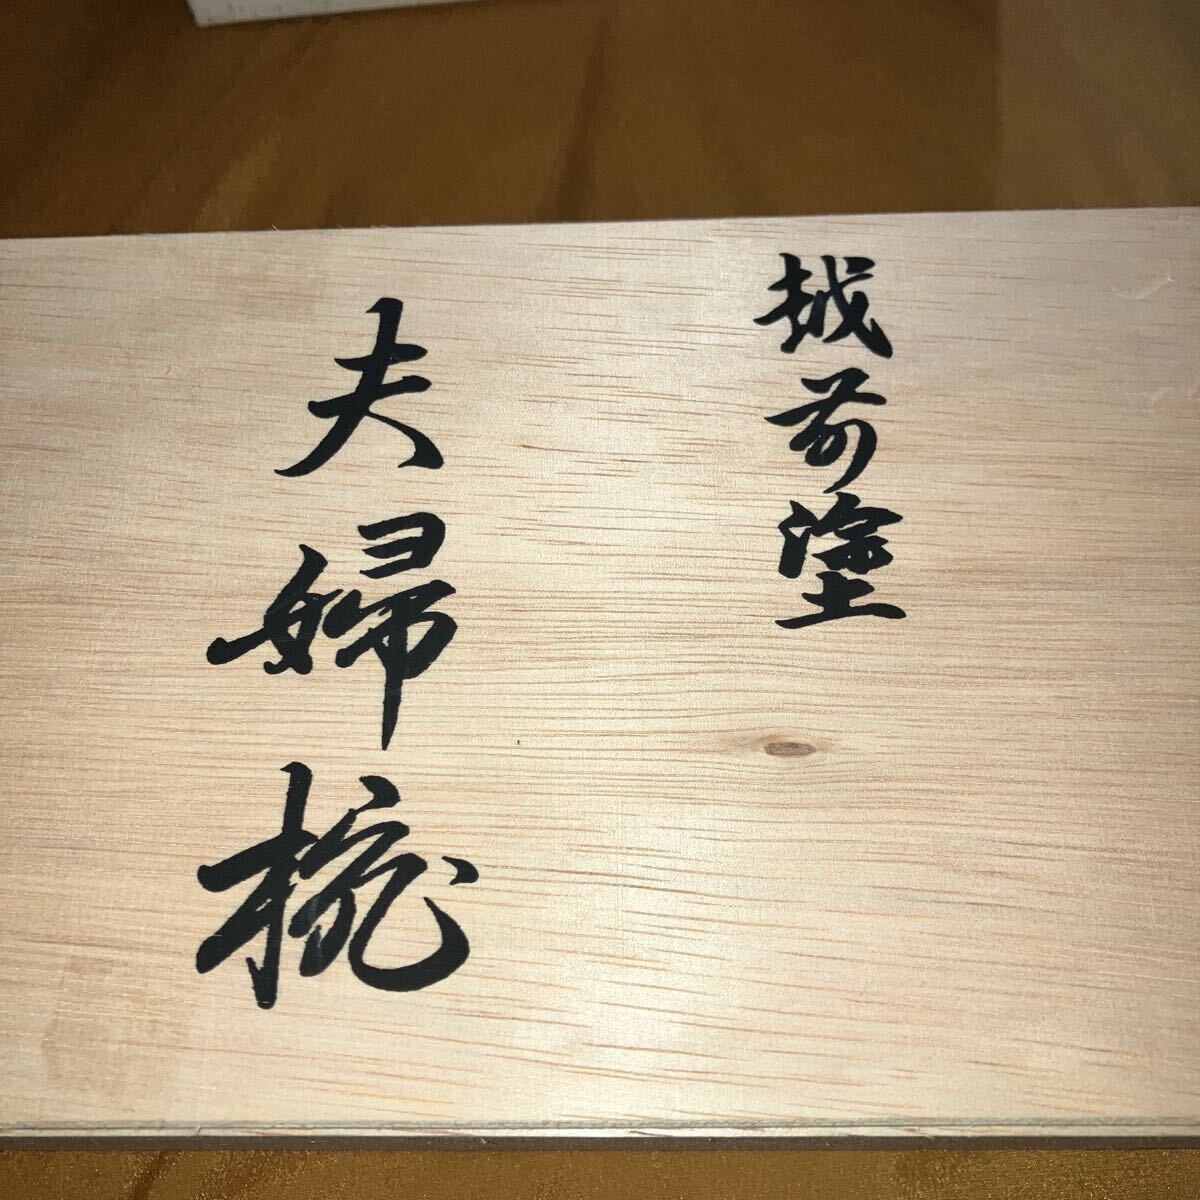 越前塗
夫婦椀